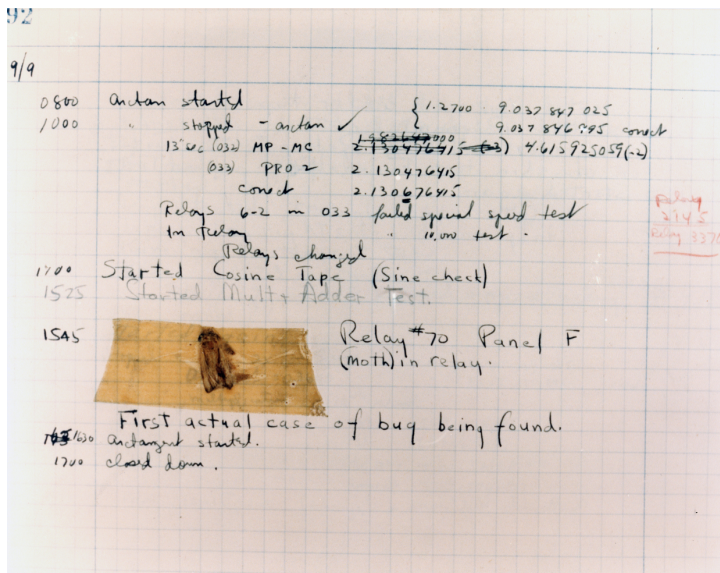 92
9/9
0800 Antan started { 1.2700 9.037 847 025
1000 " stopped - antan ✓ 9.037 846 995 conect
13"uc (032) MP - MC 2.130476415 (-3) 4.615925059(-2)
(033) PRO 2 2.130476415
conect 2.130676415
Relays 6-2 in 033 failed special speed test
In Relay " 10.000 test .
Relays changed
Relay
2145
Relay 3370
1700 Started Cosine Tape (Sine check)
1525 Started Mult + Adder Test.
1545 Relay #70 Panel F
(moth) in relay.
First actual case of bug being found.
1630 antangent started.
1700 closed down.